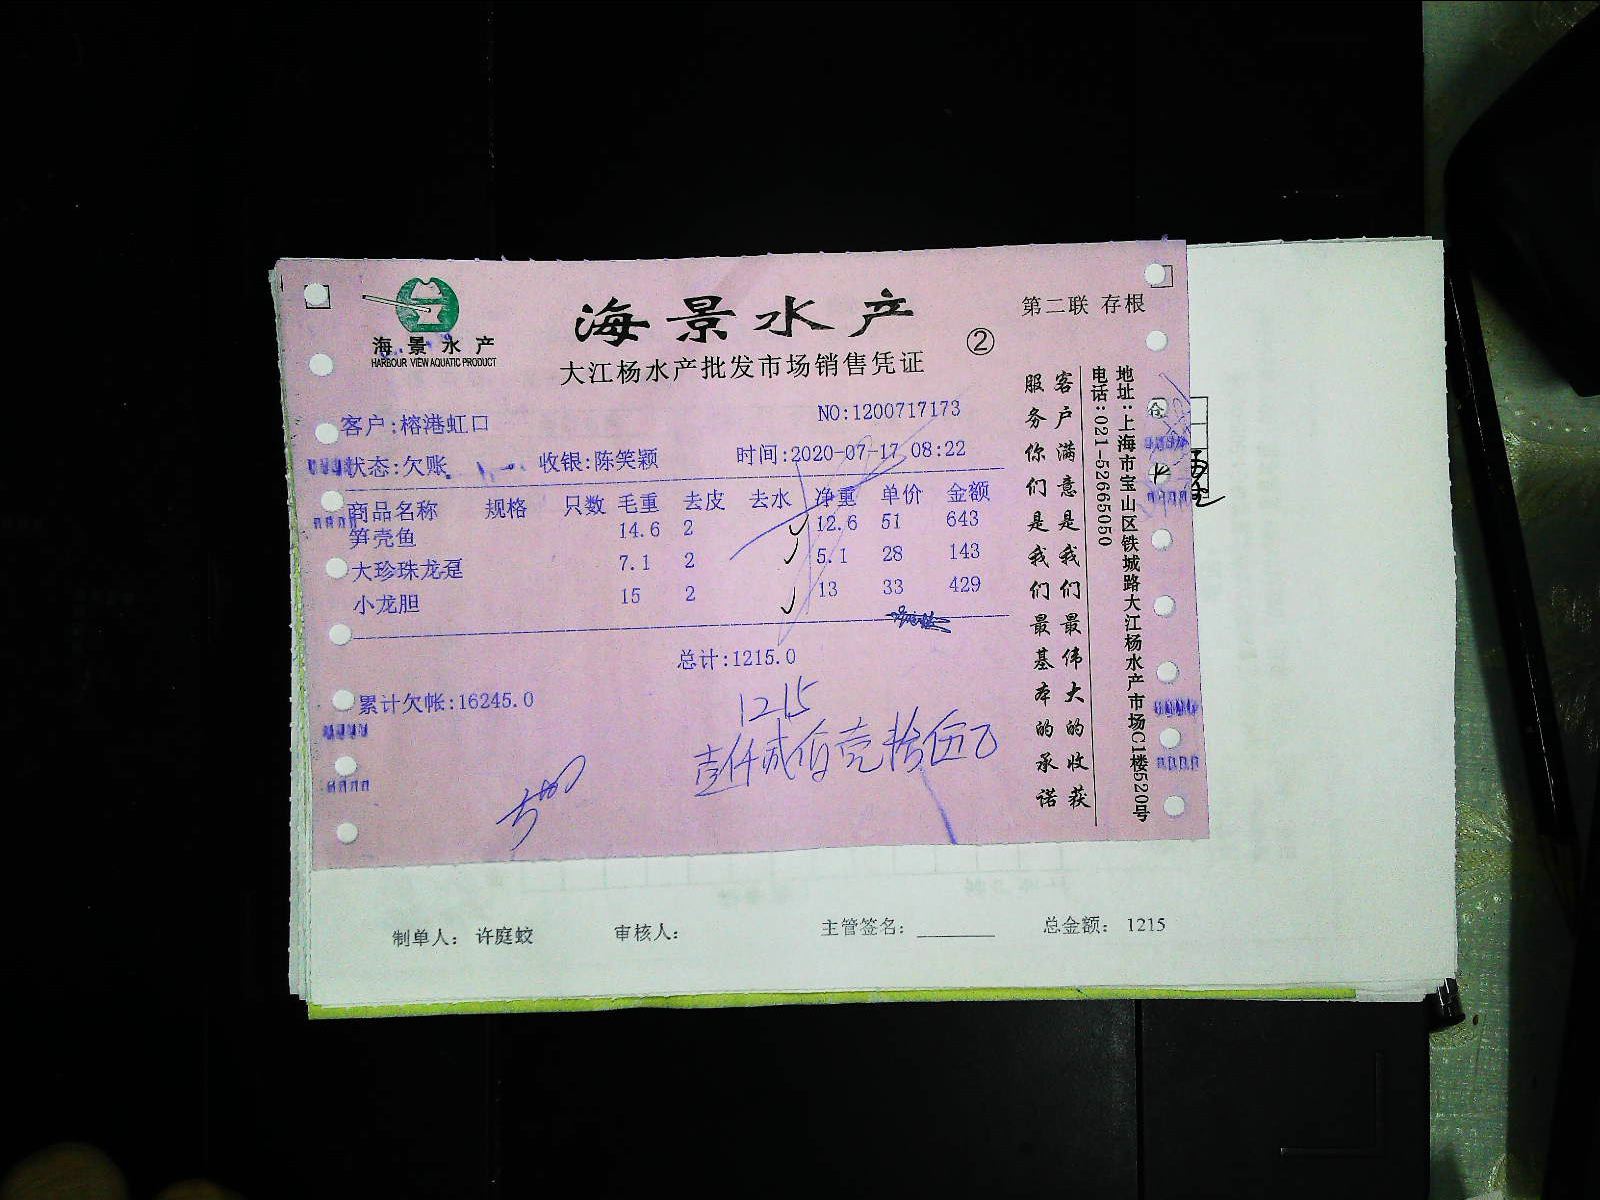 海景水产
HARBOUR VIEW AQUATIC PRODUCT
海景水产
大江杨水产批发市场销售凭证
②
第二联 存根
NO:1200717173
客户:榕港虹口
状态:欠账
收银:陈笑颖
时间:2020-07-17 08:22
商品名称 规格 只数 毛重 去皮 去水 净重 单价 金额
笋壳鱼 14.6 2 12.6 51 643
大珍珠龙趸 7.1 2 5.1 28 143
小龙胆 15 2 13 33 429
总计:1215.0
累计欠帐:16245.0
1215
壹仟贰佰壹拾伍元
客户满意是我们最伟大的收获
服务你们是我们最基本的承诺
地址:上海市宝山区铁城路大江杨水产市场C1楼520号
电话:021-52665050
制单人: 许庭蛟 审核人: 主管签名: 总金额: 1215